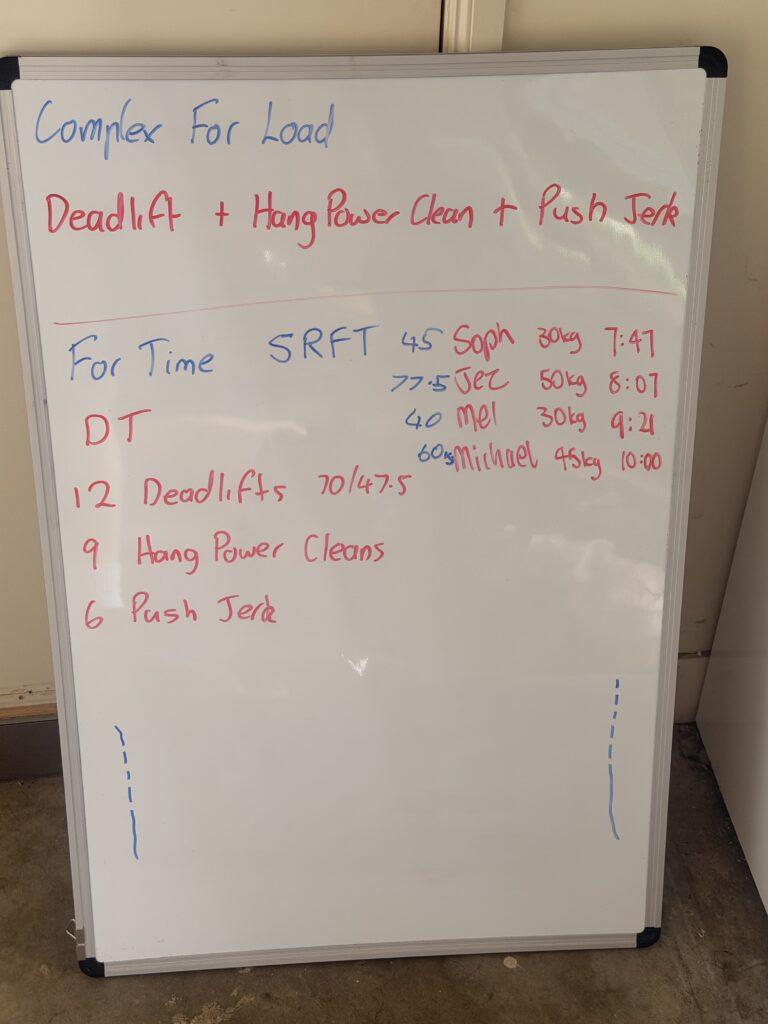 Complex For Load
Deadlift + Hang Power Clean + Push Jerk
For Time 5RFT
45 Soph 30kg 7:47
77.5 Jez 50kg 8:07
40 Mel 30kg 9:21
60kg Michael 45kg 10:00
DT
12 Deadlifts 70/47.5
9 Hang Power Cleans
6 Push Jerk